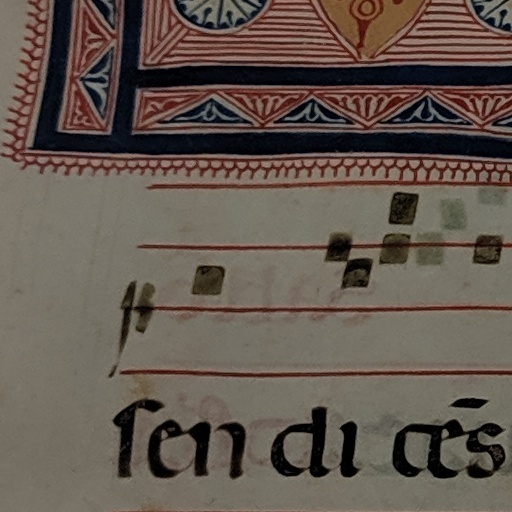 ſen di cē̄s